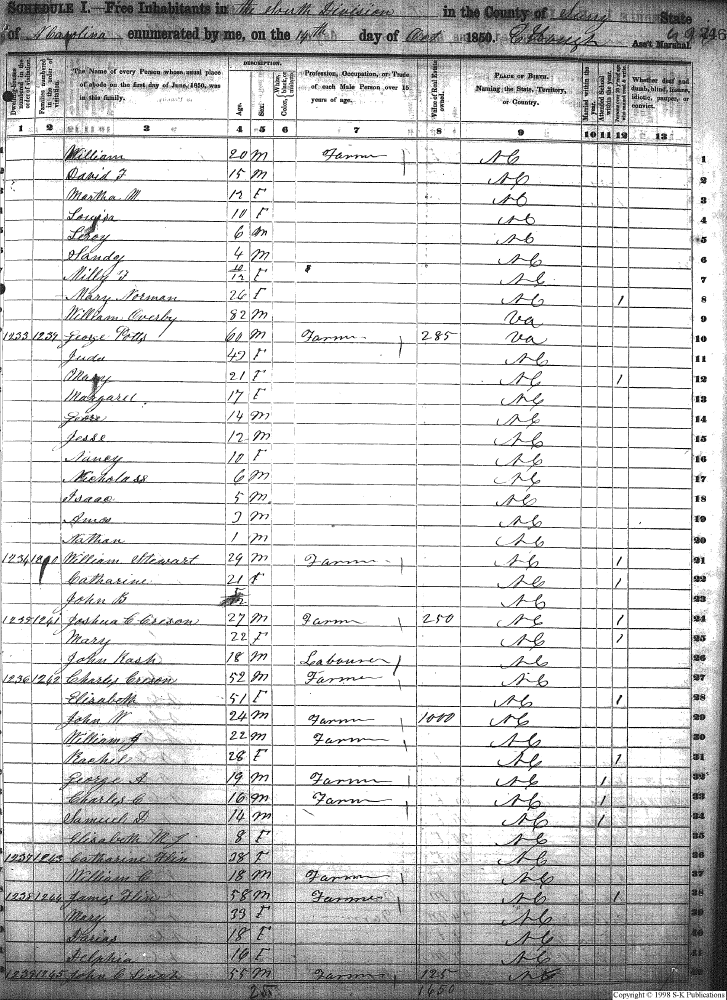 SCHEDULE I.—Free Inhabitants in the South Division in the County of Surry State
of N Carolina enumerated by me, on the 14th day of Oct 1850. Ass't Marshal. 246
Dwelling-houses numbered in the order of visitation.
Families numbered in the order of visitation.
The Name of every Person whose usual place of abode on the first day of June, 1850, was in this family.
DESCRIPTION.
Age.
Sex.
White, black, or mulatto.
Color,
Profession, Occupation, or Trade of each Male Person over 15 years of age.
Value of Real Estate owned.
PLACE OF BIRTH. Naming the State, Territory, or Country.
Married within the year.
Attended School within the year.
Whether deaf and dumb, blind, insane, idiotic, pauper, or convict.
1 2 3 4 5 6 7 8 9 10 11 12 13
1 William 20 M Farmer NC 1
David F 15 M NC 2
Martha M 12 F NC 3
Louisa 10 F NC 4
Leroy 6 M NC 5
Handy 4 M NC 6
Milly F 10/12 F NC 7
Mary Norman 26 F NC 1 8
William Overby 82 M Va 9
1233 1239 George Potts 60 M Farmer 285 Va 10
Juda 42 F NC 11
Mary 21 F NC 1 12
Margaret 17 F NC 13
14 M NC 14
Jesse 12 M NC 15
Nancy 10 F NC 16
Nicholass 6 M NC 17
Isaac 5 M NC 18
Amos 3 M NC 19
Nathan 1 M NC 20
1234 William Stewart 29 M Farmer NC 1 21
Catharine 21 F NC 1 22
John B NC 23
1235 1241 Joshua C Creson 27 M Farm 250 NC 1 24
Mary 22 F NC 1 25
John Kash 18 M Labourer NC 26
1236 1242 Charles Creson 52 M Farmer NC 27
Elizabeth 51 F NC 1 28
John W 24 M Farmer 1000 NC 29
William J 22 M Farmer NC 30
Rachel 28 F NC 1 31
George A 19 M Farmer NC 1 32
Charles C 16 M Farmer NC 1 33
Samuel D 14 M NC 1 34
Elizabeth M J 8 F NC 35
1237 1243 Catharine Flin 38 F NC 36
William C 18 M Farmer NC 37
1238 1244 James Flin 58 M Farmer NC 1 38
Mary 33 F NC 39
Darias 18 F NC 40
Delphia 16 F NC 41
1239 1245 John C 55 M Farmer 125 NC 42
25 1650
Copyright © 1998 S-K Publications